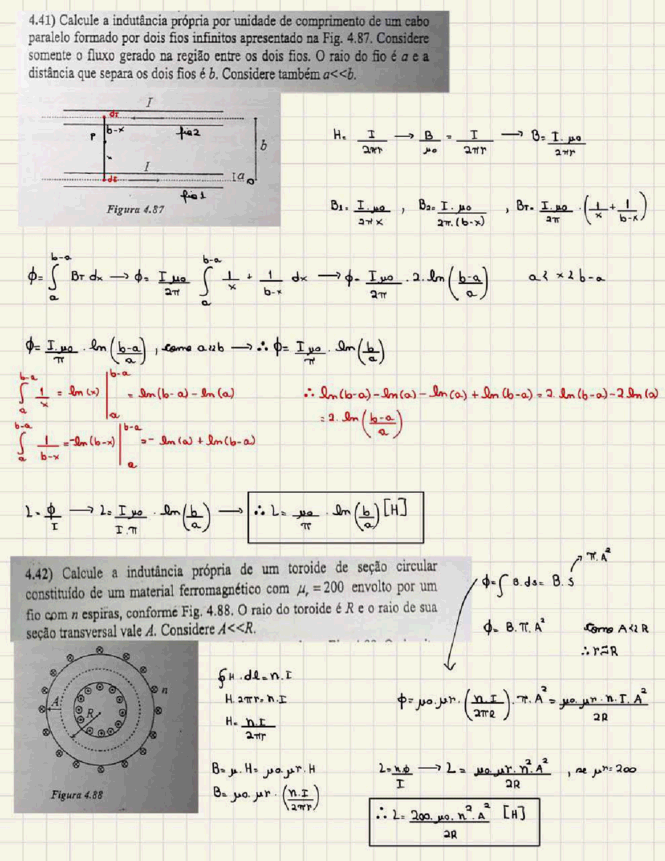 4.41) Calcule a indutância própria por unidade de comprimento de um cabo
paralelo formado por dois fios infinitos apresentado na Fig. 4.87. Considere
somente o fluxo gerado na região entre os dois fios. O raio do fio é a e a
distância que separa os dois fios é b. Considere também a<<b.
I
dr
b-x
P
fio 2
b
x
I
dr
fio 1
a
Figura 4.87
H = I/2πr → B/μ0 = I/2πr → B = I.μ0/2πr
B1 = I.μ0/2πx , B2 = I.μ0/2π.(b-x) , BT = I.μ0/2π . (1/x + 1/b-x)
ϕ = ∫ₐᵇ⁻ᵃ BT dx → ϕ = I μ0/2π ∫ₐᵇ⁻ᵃ 1/x + 1/b-x dx → ϕ = I μ0/2π . 2. ln (b-a/a) a < x < b-a
ϕ = I.μ0/π . ln (b-a/a) , como a<<b → ∴ ϕ = I μ0/π . ln (b/a)
∫ₐᵇ⁻ᵃ 1/x = ln(x) |ₐᵇ⁻ᵃ = ln(b-a) - ln(a) ∴ ln(b-a) - ln(a) - ln(a) + ln(b-a) = 2. ln(b-a) - 2 ln(a)
= 2. ln (b-a/a)
∫ₐᵇ⁻ᵃ 1/b-x = -ln(b-x) |ₐᵇ⁻ᵃ = - ln(a) + ln(b-a)
L = ϕ/I → L = I μ0/I.π . ln (b/a) → ∴ L = μ0/π . ln (b/a) [H]
4.42) Calcule a indutância própria de um toroide de seção circular
constituído de um material ferromagnético com μr = 200 envolto por um
fio com n espiras, conforme Fig. 4.88. O raio do toroide é R e o raio de sua
seção transversal vale A. Considere A<<R.
π.A²
ϕ = ∫ B.ds = B.S
ϕ = B.π.A² como A<<R
∴ r≅R
n
A
R
Figura 4.88
∮H.dl = n.I
H.2πr = n.I
H = n.I/2πr
B = μ.H = μ0.μr.H
B = μ0.μr.(n.I/2πr)
ϕ = μ0.μr.(n.I/2πR).π.A² = μ0.μr.n.I.A²/2R
L = n.ϕ/I → L = μ0.μr.n².A²/2R , se μr = 200
∴ L = 200.μ0.n².A²/2R [H]